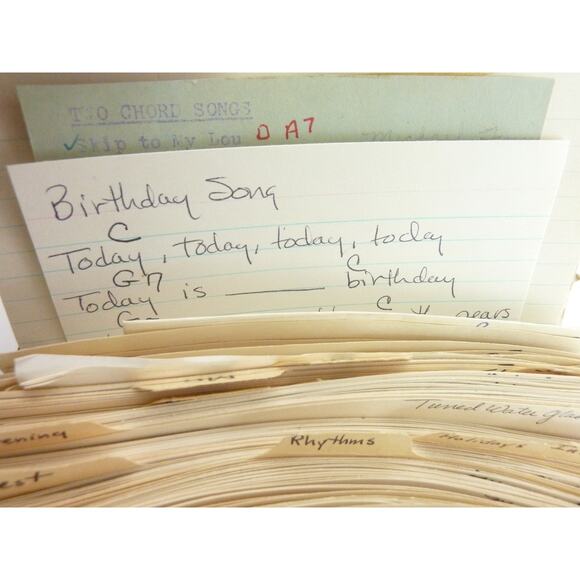 TWO CHORD SONGS
✓Skip to My Lou D A7
Birthday Song
C
Today, today, today, today
G7 C
Today is ______ birthday
C
years
Tuned Water
Rhythms
Holidays